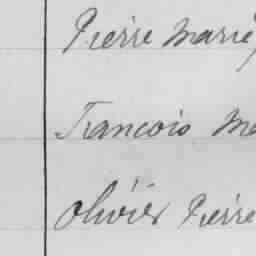 Pierre Marie
Francois Ma
Olivier Pierre